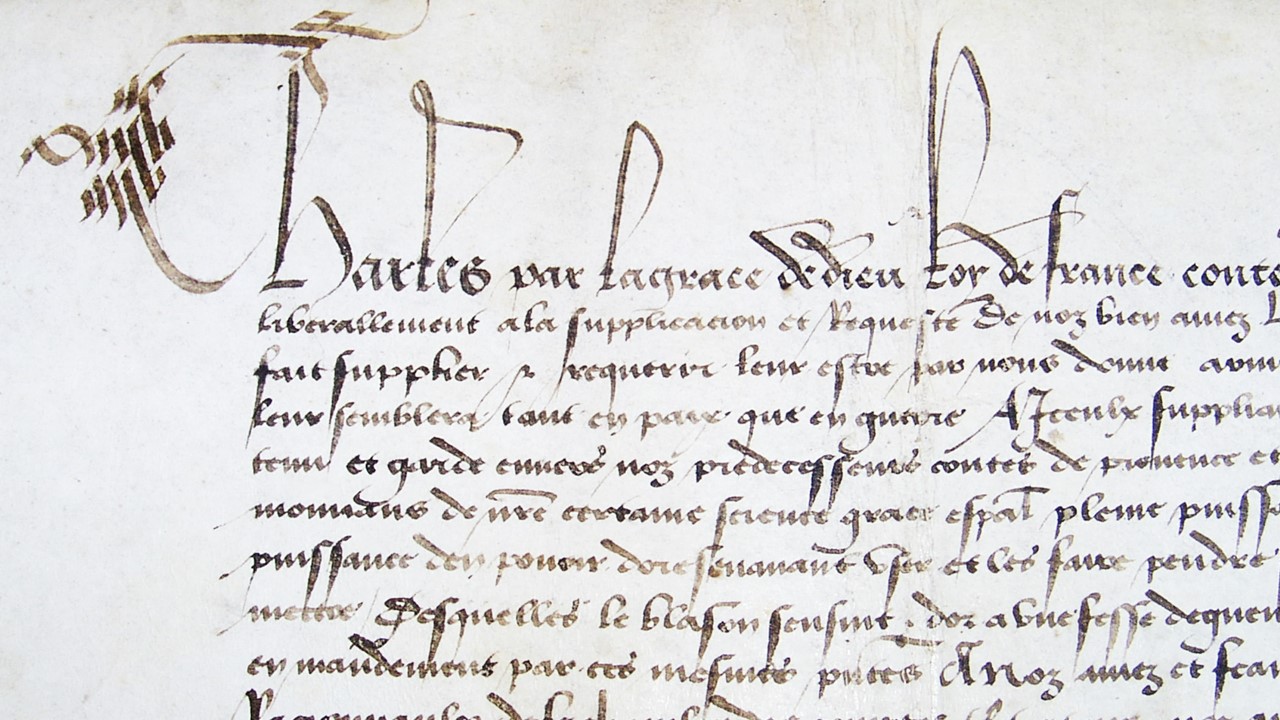 Charles par lagrace dedieu Roy de france conte
liberallement ala supplicacion et Requeste de noz bien amez
fait supplier & requerir leur estre par nous donne
leur semblera tant en paix que en guerre A Iceulx supplia
tenu et garde envers noz predecesseurs contes de prouence et
mouuans de nre certaine science grace espal pleine puissa
puissance den pouoir doresenauant vser et les faire pendre
mettre Desquelles le blason sensuit dor a vne fesse de gueu
en mandement par ces mesmes pntes A Noz amez et feau